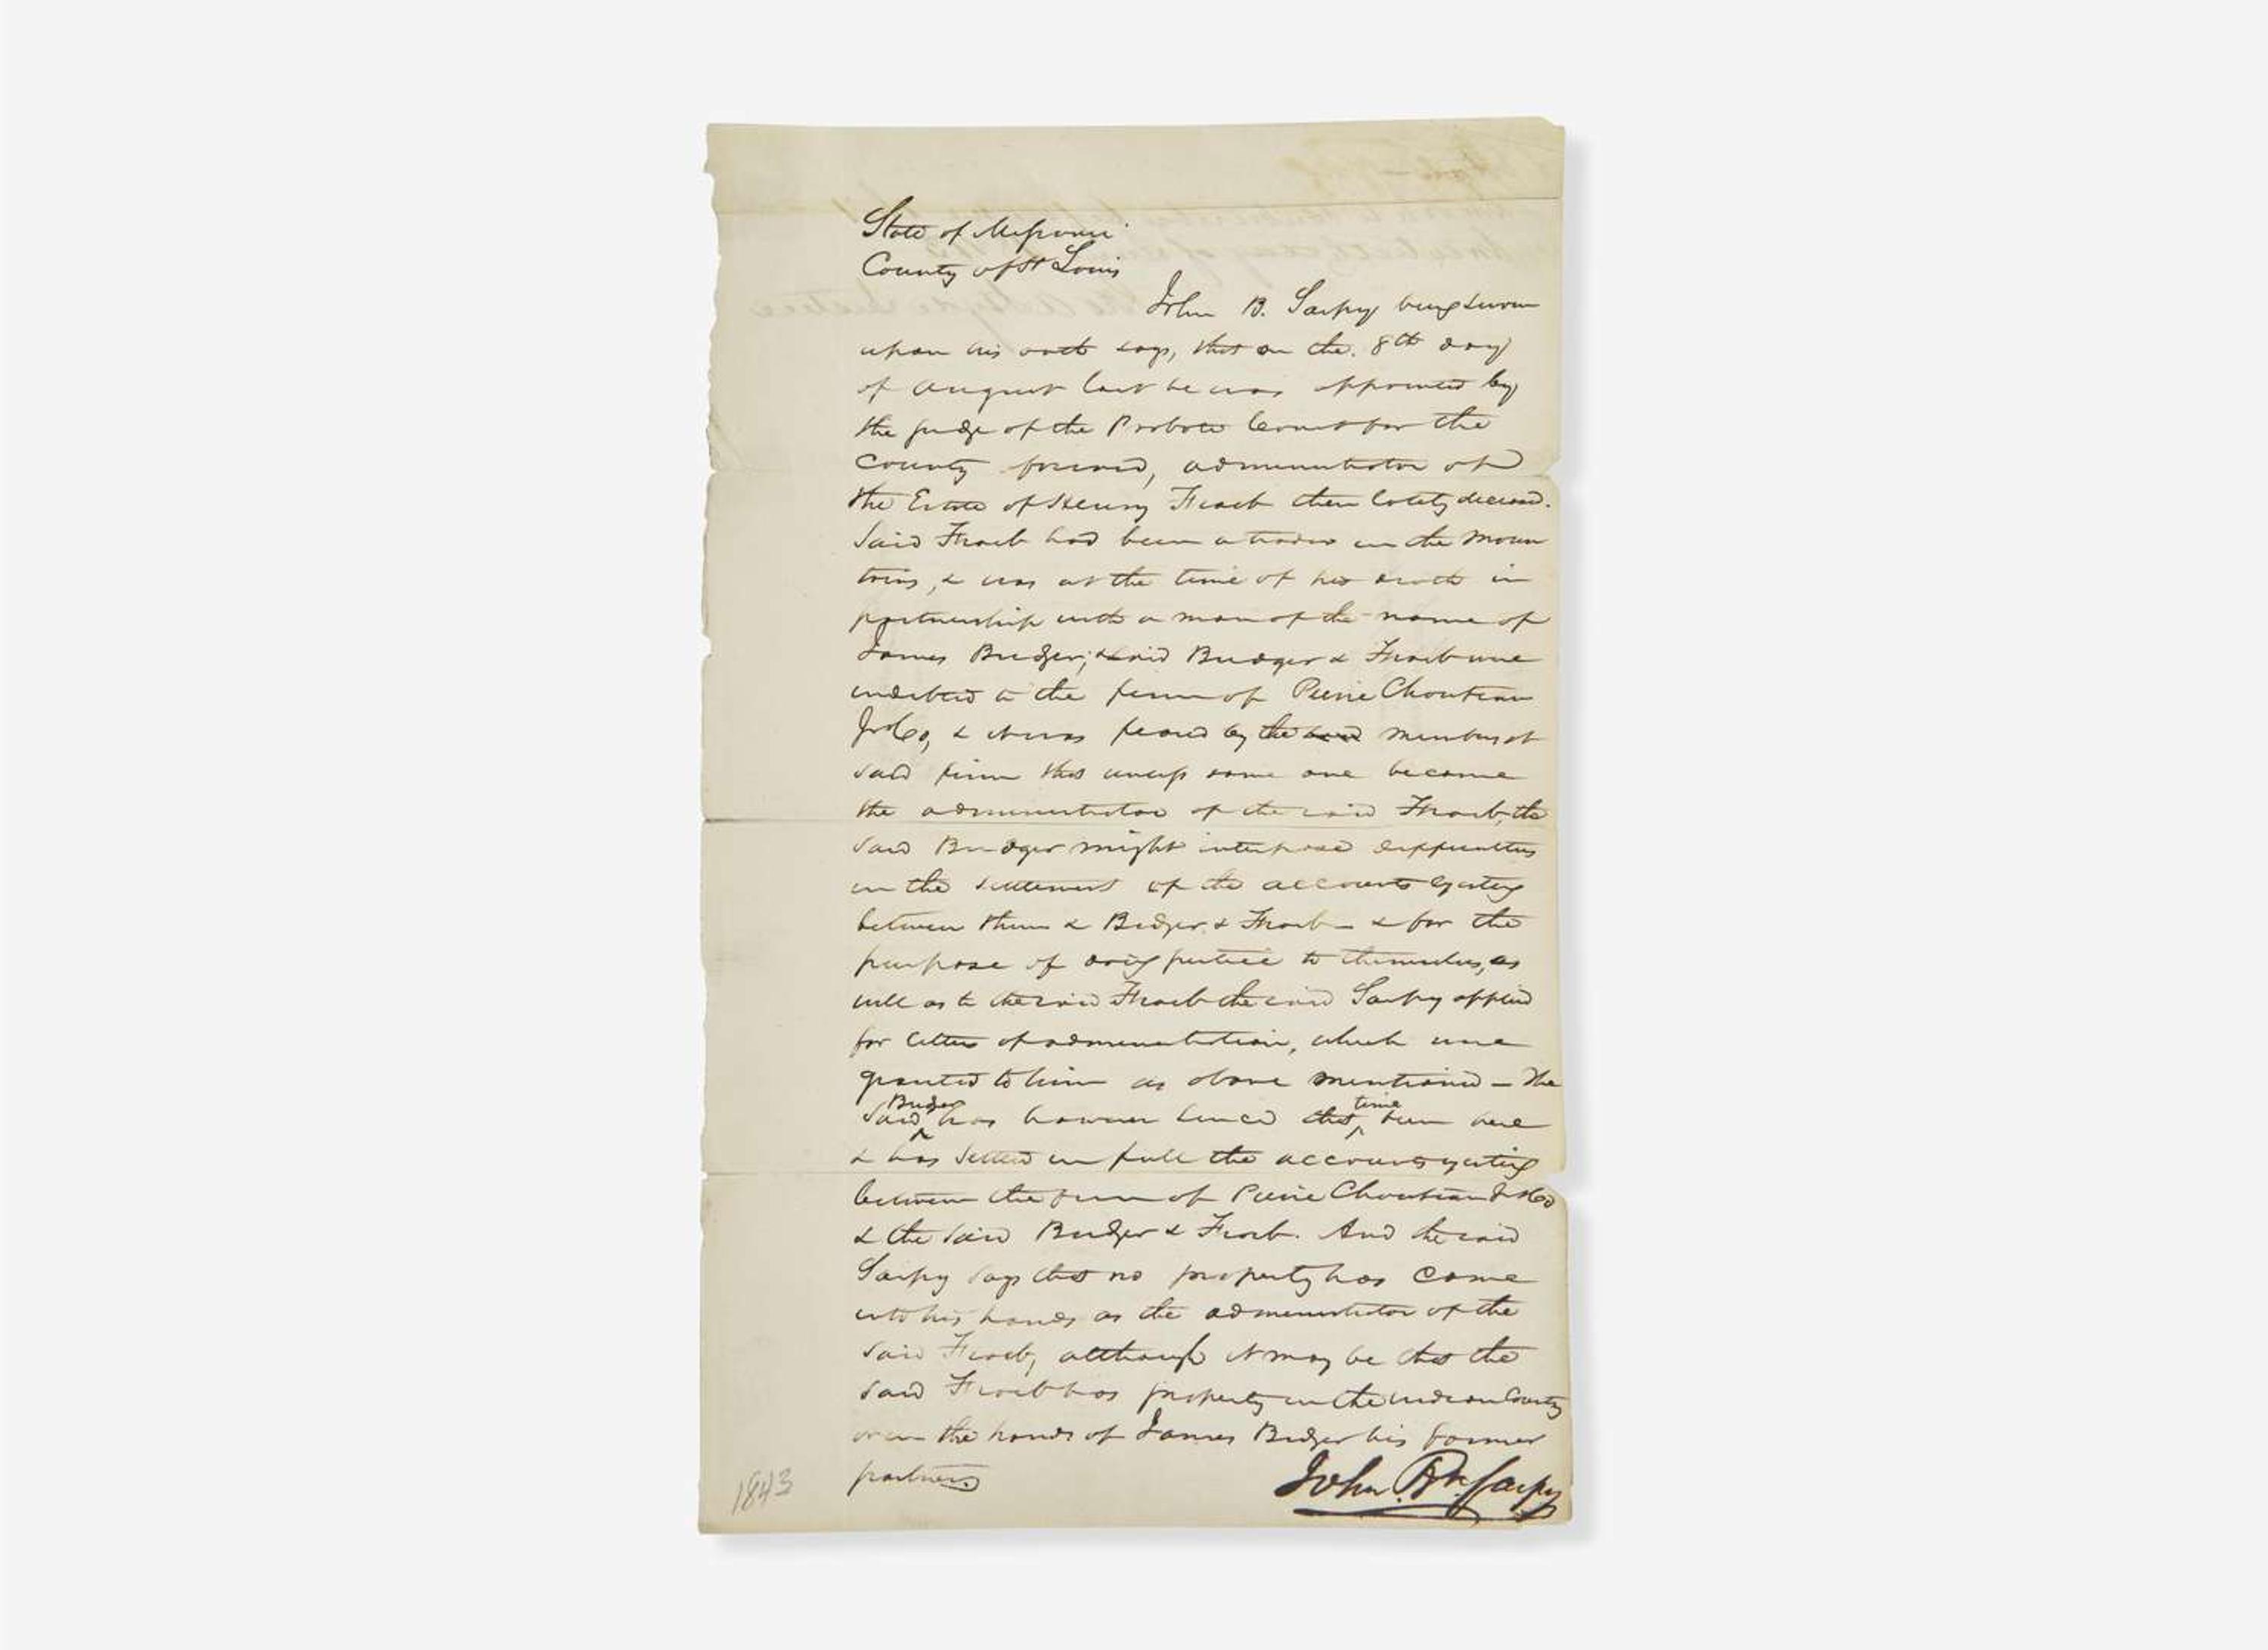 State of Missouri
County of St Louis
John B. Sarpy being sworn
upon his oath says, that on the 8th day
of August last he was appointed by
the judge of the Probate Court for the
County foresaid, administrator of
the Estate of Henry Fraeb then lately deceased.
Said Fraeb had been a trader in the moun
tains, & was at the time of his death in
partnership with a man of the name of
James Bridger; & said Bridger & Fraeb were
indebted to the firm of Pierre Chouteau
Jr & Co, & it was feared by the said members of
said firm that unless some one became
the administrator of the said Fraeb, the
said Bridger might interpose difficulties
in the settlement of the accounts existing
between them & Bridger & Fraeb — & for the
purpose of doing justice to themselves, as
well as to the said Fraeb the said Sarpy applied
for letters of administration, which were
granted to him as above mentioned — The
said Bridger has however since that time been here
& has settled in full the accounts existing
between the firm of Pierre Chouteau Jr & Co
& the said Bridger & Fraeb. And the said
Sarpy says that no property has come
into his hands as the administrator of the
said Fraeb, although it may be that the
said Fraeb has property in the Indian Country
or in the hands of James Bridger his former
partner.
John B. Sarpy
1843